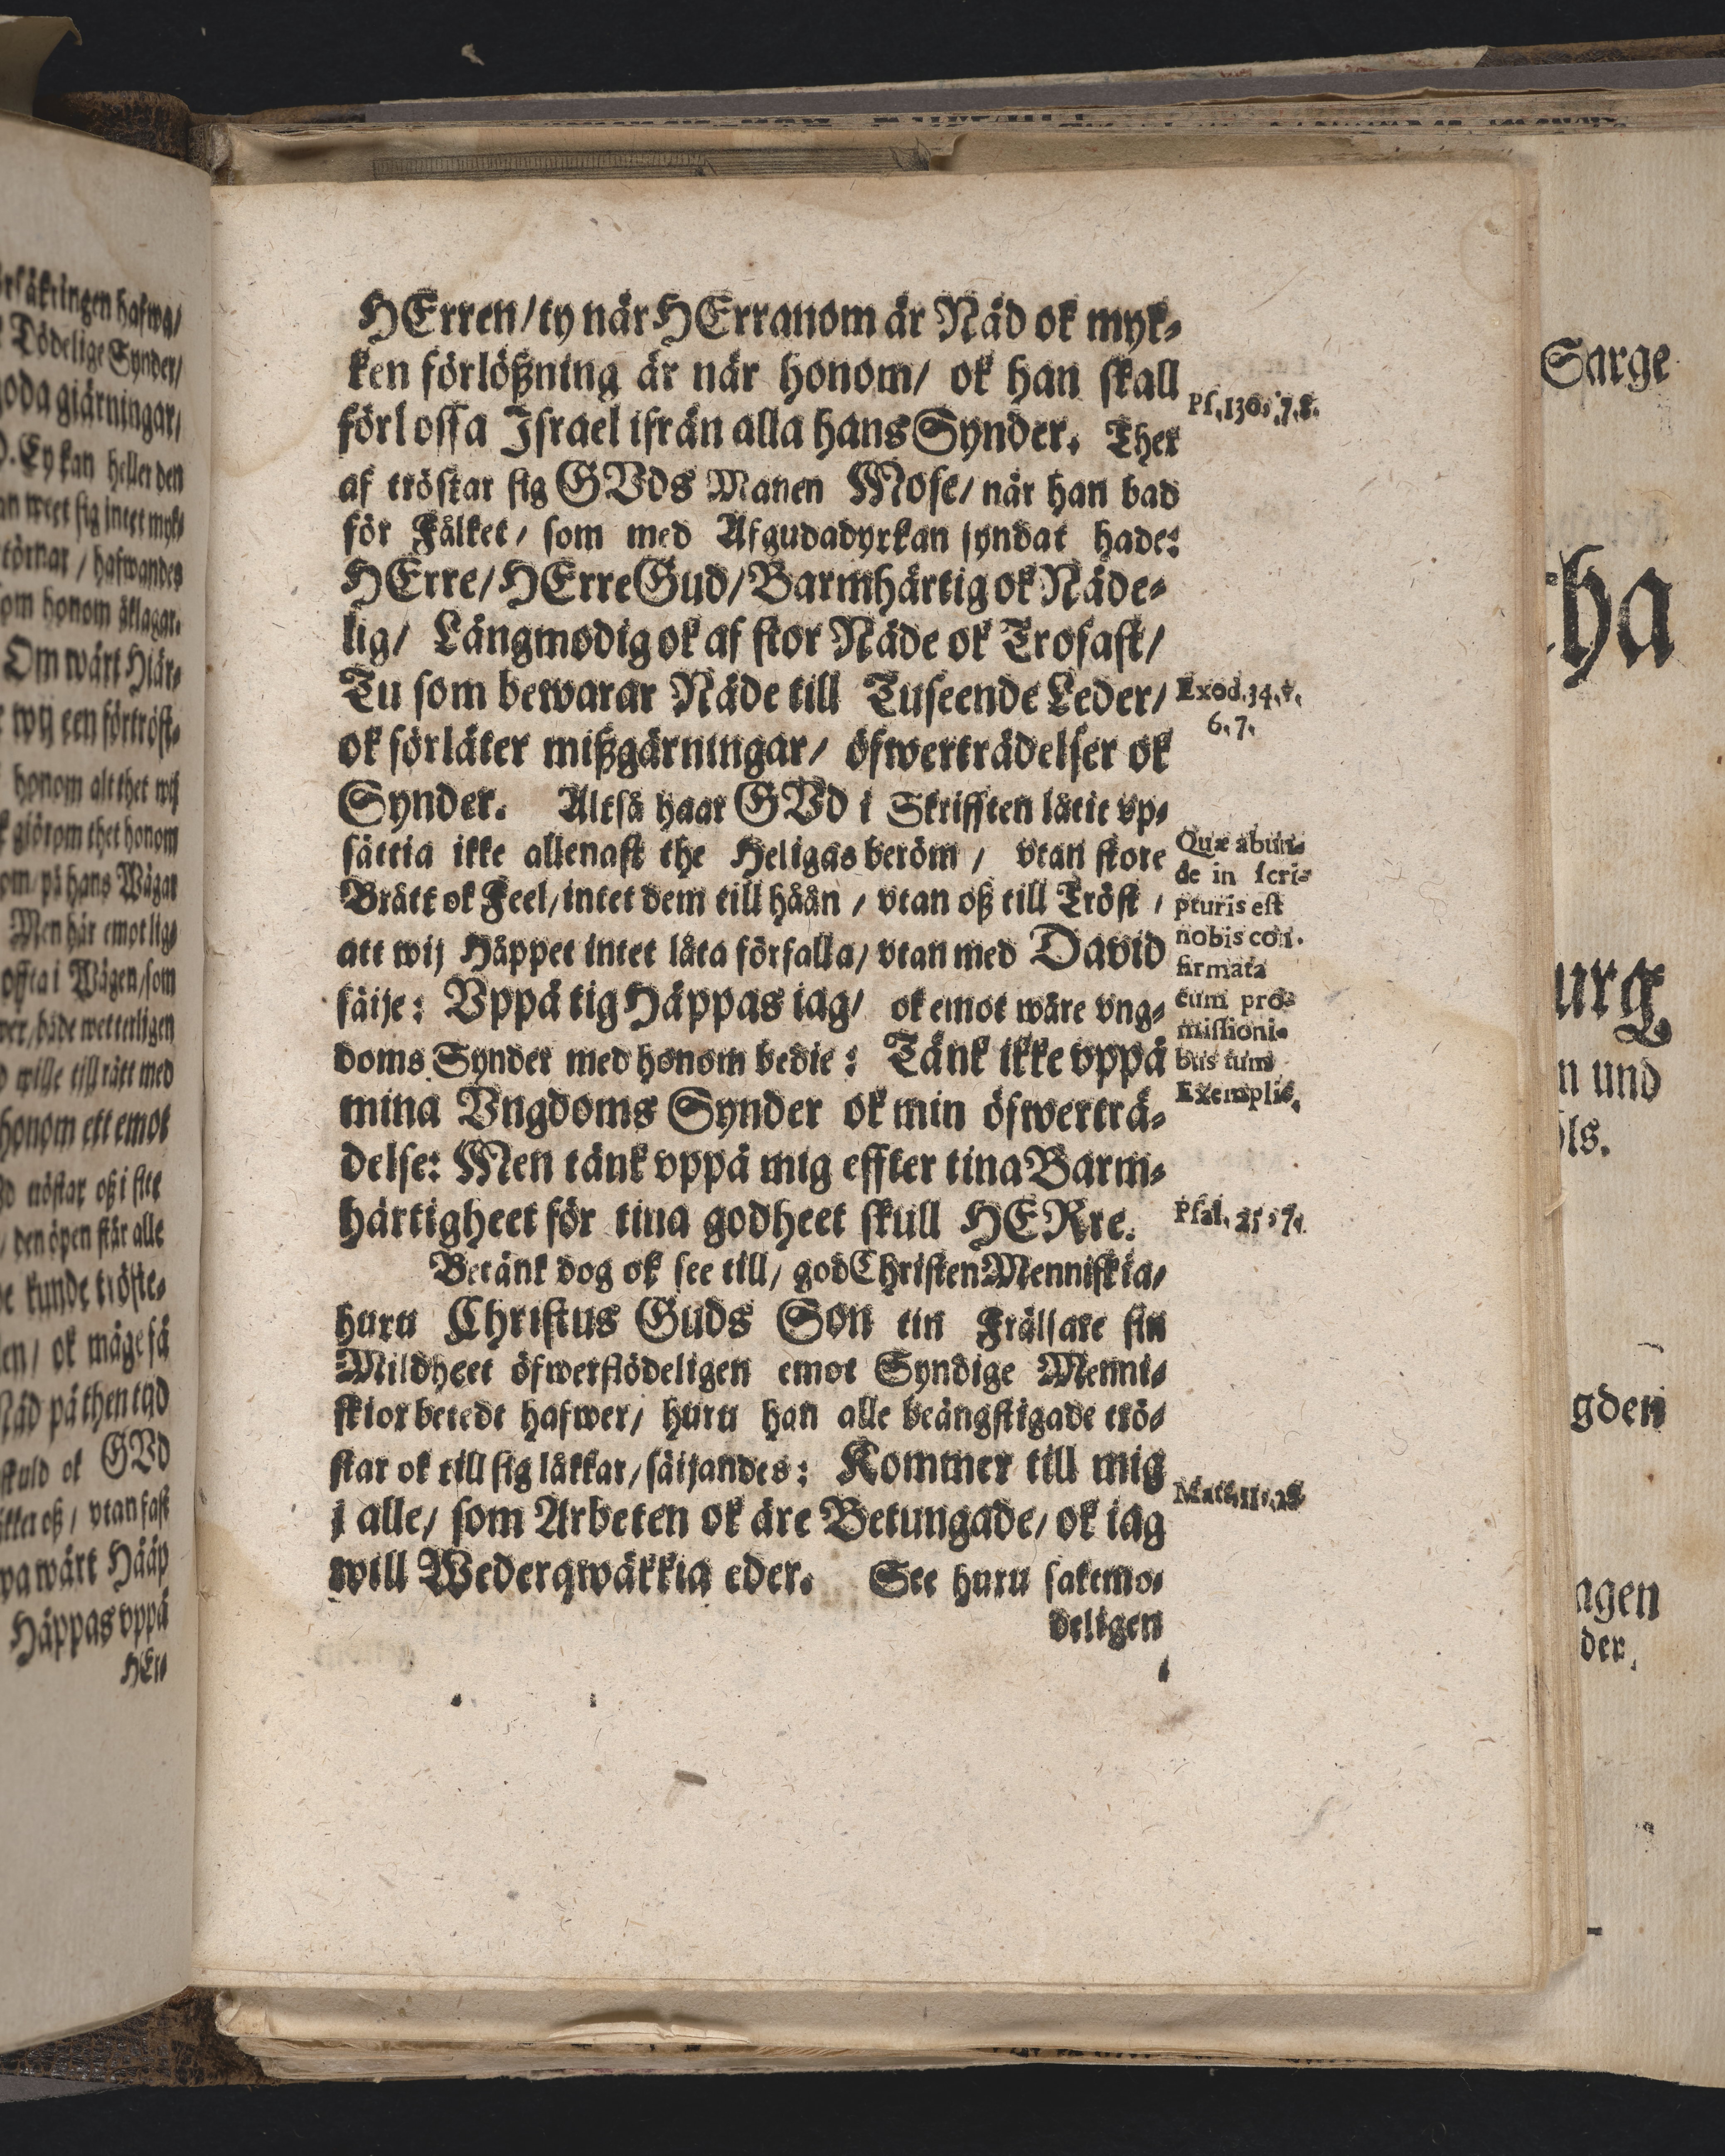 HErren/ ty när HErranom är Nåd ok myk-
ken förlößning är när honom/ ok han skall
förlossa Israel ifrån alla hans Synder. Ther
af tröstar sig GVds Manen Mose/ når han bad
för Fålket/ som med Afgudadyrkan syndat hade:
HErre/ HErre Gud/ Barmhärtig ok Nåde-
lig/ Långmodig ok af stor Nåde ok Trofast/
Tu som bewarar Nåde till Tuseende Leder/
ok förlåter mißgärningar/ öfwerträdelser ok
Synder. Altså haar GVd i Skrifften låtit vp-
sättia ikke allenast the Heligas beröm/ vtan store
Brått ok Feel/ intet dem till håån/ vtan oß till Tröst/
att wij Håppet intet låta förfalla/ vtan med David
säije: Vppå tig Håppas iag/ ok emot wåre vng-
doms Synder med honom bedie: Tänk ikke vppå
mina Vngdoms Synder ok min öfwerträ-
delse: Men tänk vppå mig effter tina Barm-
härtigheet för tina godheet skull HERre.
Betänk dog ok see till/ god Christen Menniskia/
huru Christus Guds Son tin Frälsare sin
Mildheet öfwerflödeligen emot Syndige Menni-
skior betedt hafwer/ huru han alle beängstigade trö-
star ok till sig låkkar/ säijandes: Kommer till mig
i alle/ som Arbeten ok äre Betungade/ ok iag
will Wederqwäkkia eder. See huru saktmo-
deligen
Ps. 130. 7. 8.
Exod. 34. v.
6. 7.
Quæ abun-
de in scri-
pturis est
nobis con-
firmata
cum pro-
missioni-
bus tum
Exemplis.
Psal. 25. 7.
Matt. 11. 28
Om wårt Hiär-
honom alt thet wij
giörom thet honom
om/ på hans Wägar
Men här emot lig-
honom ett emot
den öpen står alle
Nåd på then tijd
skuld ok GVd
Håppas vppå
HEr-
Sarge
ha
urg
n und
ls.
gden
agen
der.